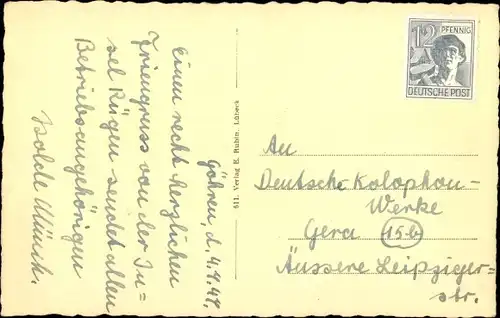 Göhren, d. 4.9.48.
Einen recht herzlichen
Feriengruss von der In=
sel Rügen sendet allen
Betriebsangehörigen
Isolde Münch.
611. Verlag E. Rubin, Lübeck
12 PFENNIG
DEUTSCHE POST
An
Deutsche Kolophon-
Werke
Gera (15b)
Äussere Leipziger-
str.